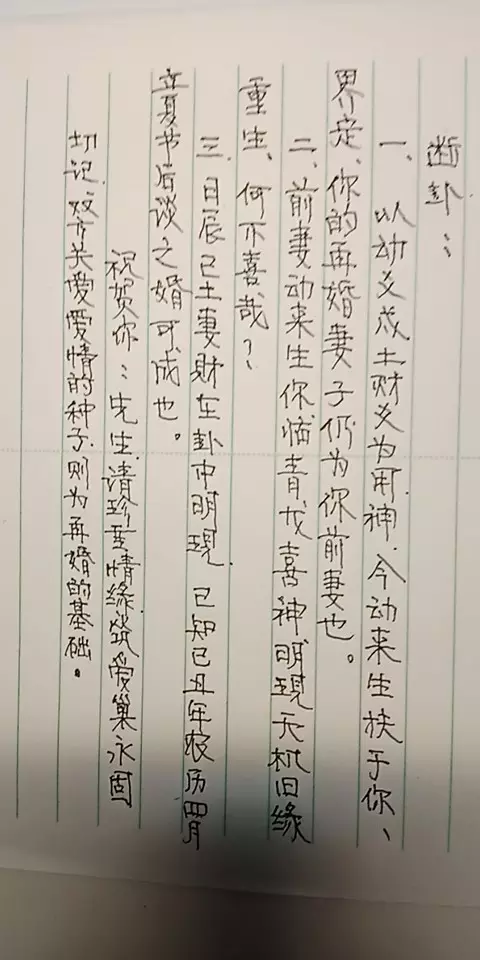 断卦：
一、以动爻戌土财爻为用神.今动来生扶于你、
界定、你的再婚妻子仍为你前妻也。
二、前妻动来生你临青龙喜神明现天机旧缘
重生、何不喜哉？
三.日辰己土妻财在卦中明现.已知己丑年农历四月
立夏节后谈之婚可成也。
祝贺你：先生.请珍重情缘.筑爱巢永固
切记.双方关爱爱情的种子.则为再婚的基础。